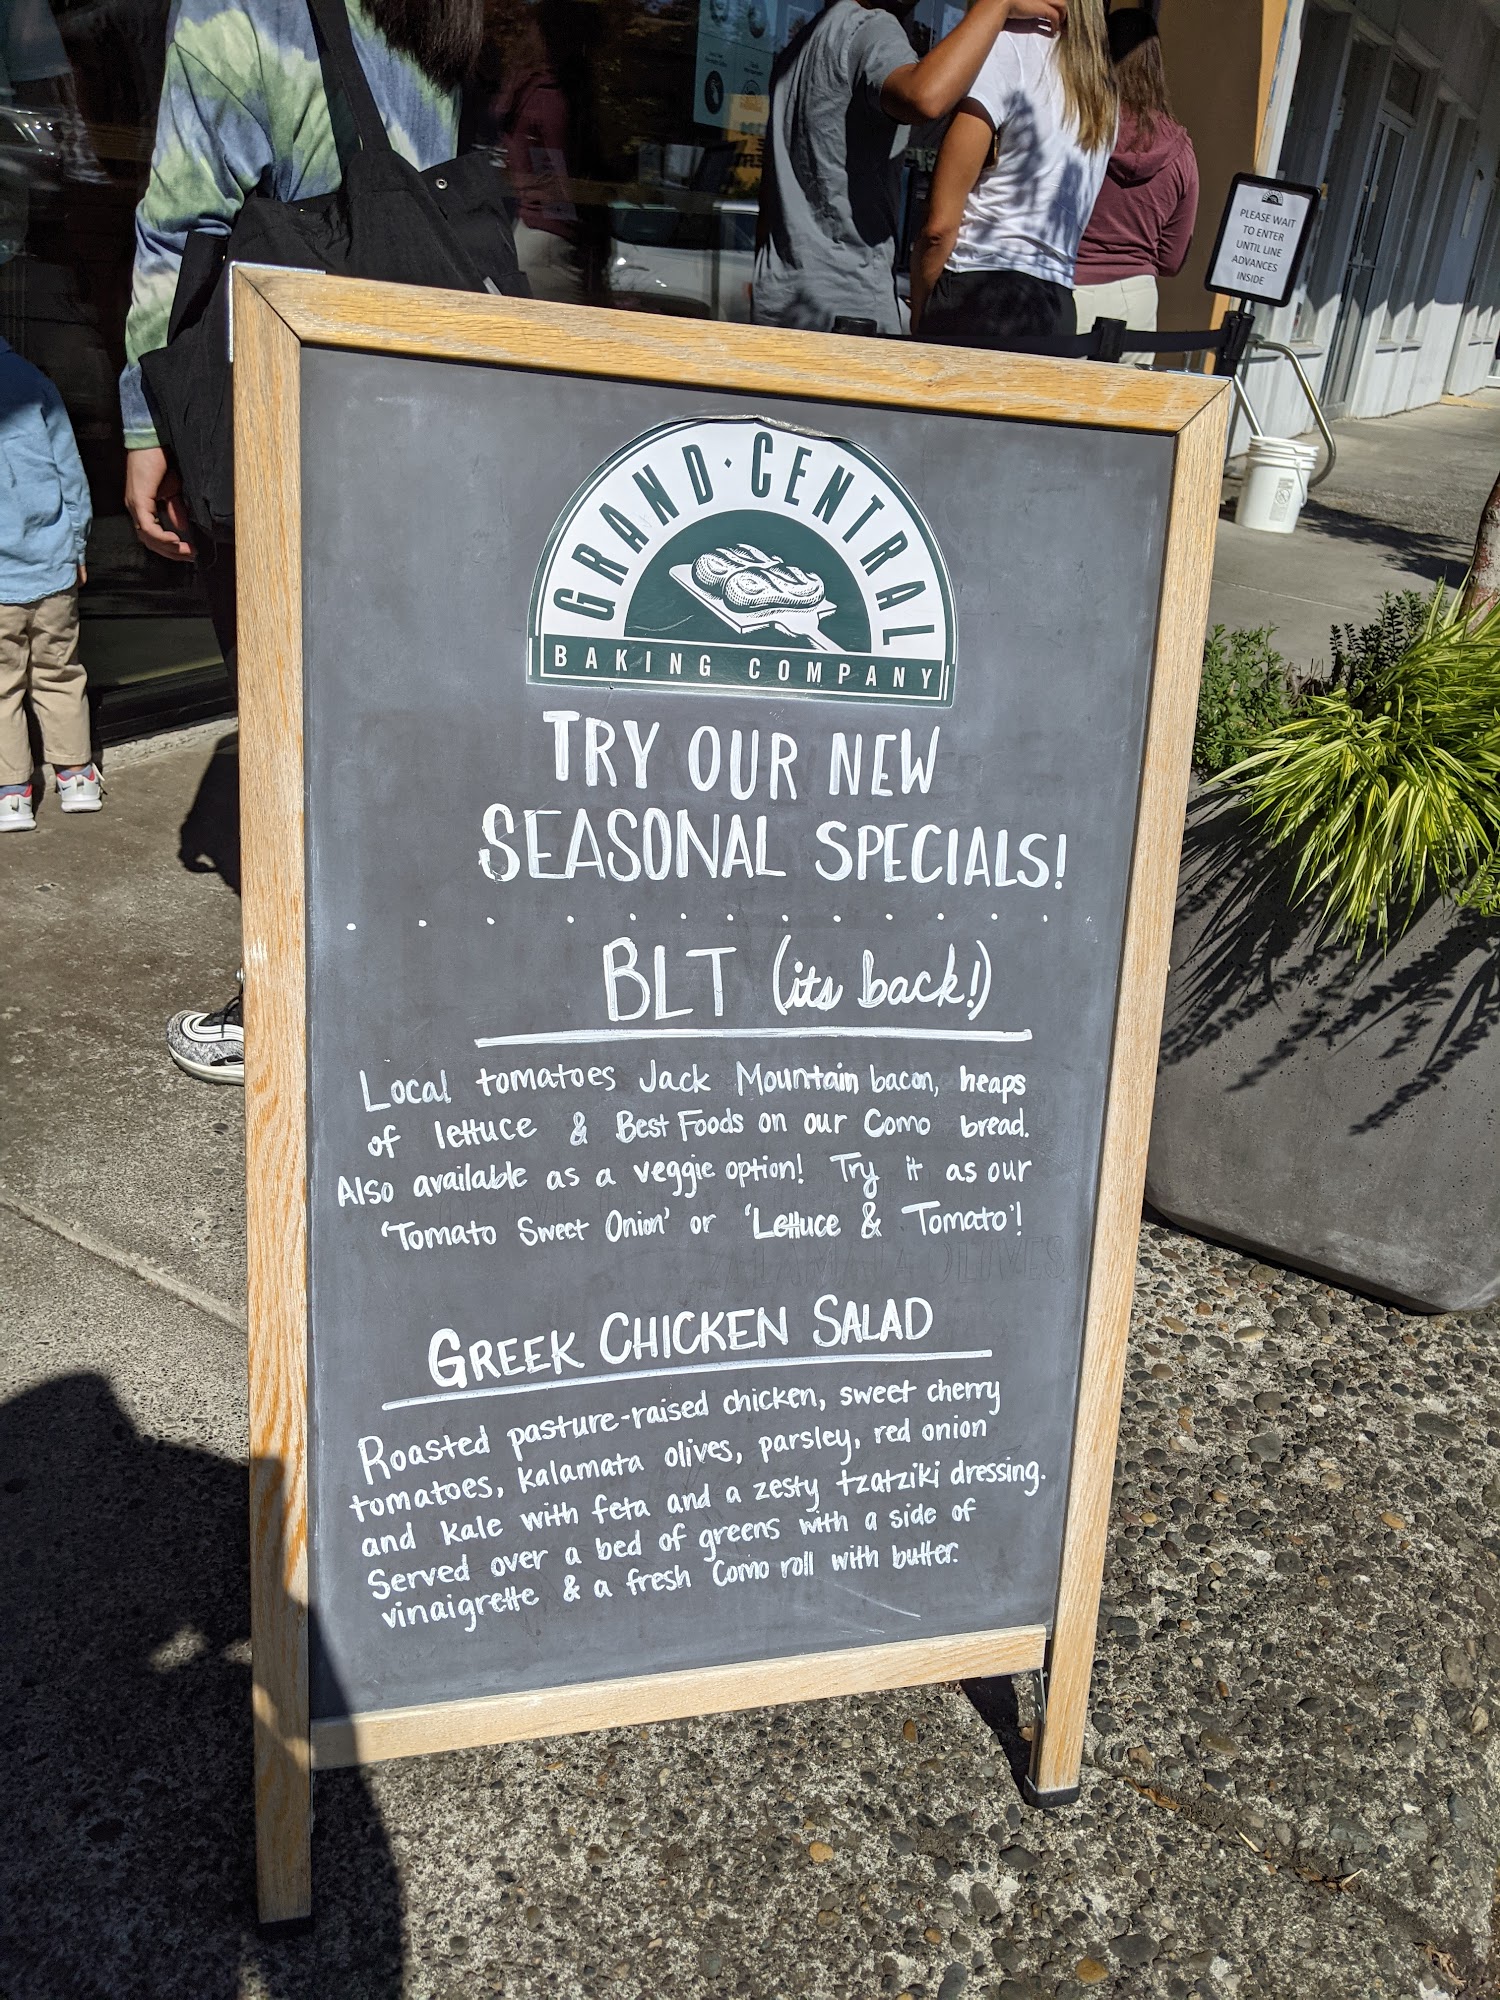 PLEASE WAIT
TO ENTER
UNTIL LINE
ADVANCES
INSIDE
GRAND · CENTRAL
BAKING COMPANY
TRY OUR NEW
SEASONAL SPECIALS!
BLT (its back!)
Local tomatoes Jack Mountain bacon, heaps
of lettuce & Best Foods on our Como bread.
Also available as a veggie option! Try it as our
'Tomato Sweet Onion' or 'Lettuce & Tomato'!
GREEK CHICKEN SALAD
Roasted pasture-raised chicken, sweet cherry
tomatoes, kalamata olives, parsley, red onion
and kale with feta and a zesty tzatziki dressing.
Served over a bed of greens with a side of
vinaigrette & a fresh Como roll with butter.